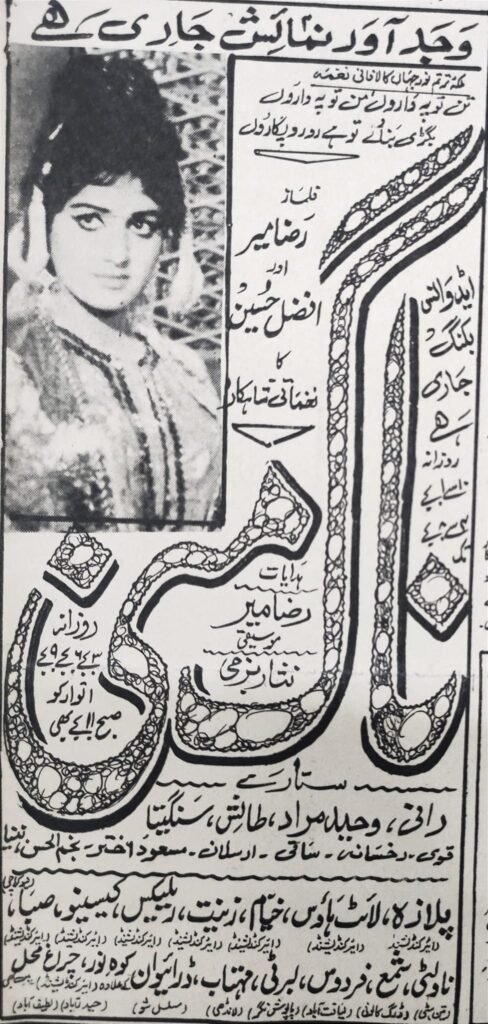 وجد آور نمائش جاری ہے
ملکۂ ترنم نورجہاں کا لافانی نغمہ
تن تو پہ واروں من تو پہ واروں
بگڑی بنادے تو ہے رو رو پکاروں
فلمساز
رضا میر
اور
افضل حسین
کا
نغماتی شاہکار
ناگ منی
ایڈوانس
بکنگ
جاری
ہے
روزانہ
ہدایات
رضا میر
موسیقی
نثار بزمی
روزانہ
۳ بجے ۶ بجے ۹ بجے
اتوار کو
صبح ۱۱ بجے بھی
ستارے
رانی، وحید مراد، طالش، سنگیتا
قوی۔ رخسانہ۔ ساقی۔ ارسلان۔ مسعود اختر۔ نجم الحسن،
پلازہ، لائٹ ہاؤس، خیام، زینت، ریلیکس، کیسینو، صبا،
(ایرکنڈیشنڈ) (ایرکنڈیشنڈ) (ایرکنڈیشنڈ) (ایرکنڈیشنڈ) (ایرکنڈیشنڈ)
ناولٹی، شمع، فردوس، لبرٹی، مہتاب، ڈرائیوان کوہ نور، چراغ محل
(ڈرگ کالونی) (لیاقت آباد) (لانڈھی) (حیدرآباد) (لطیف آباد)